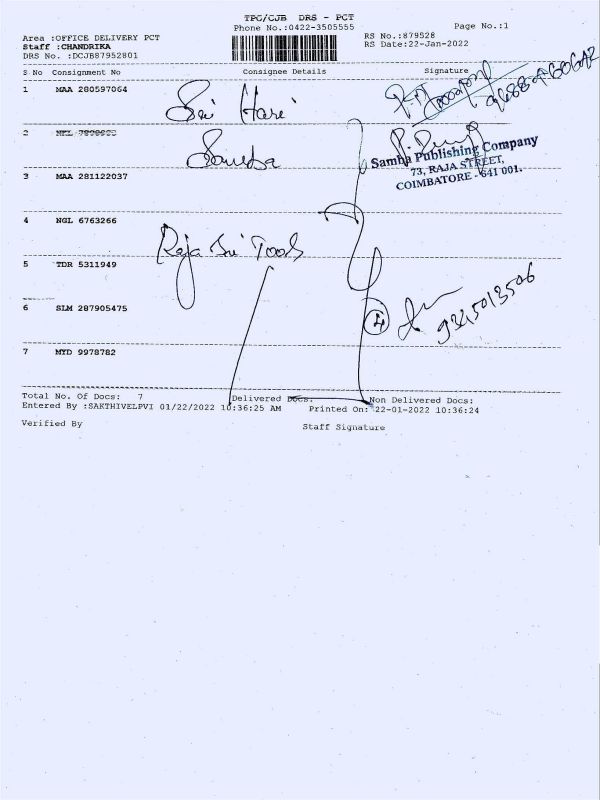 TPC/CJB DRS - PCT
Phone No.:0422-3505555
Page No.:1
Area :OFFICE DELIVERY PCT
RS No.:879528
Staff :CHANDRIKA
RS Date:22-Jan-2022
DRS No. :DCJB87952801
S No Consignment No Consignee Details Signature
1 MAA 280597064
Sri Hari
2
Samba
Samba Publishing Company
73, RAJA STREET,
COIMBATORE - 641 001.
3 MAA 281122037
4 NGL 6763266
Raja Sri Tools
5 TDR 5311949
6 SLM 287905475
4
9345013506
7 MYD 9978782
Total No. Of Docs: 7 Delivered Docs: Non Delivered Docs:
Entered By :SAKTHIVELPVI 01/22/2022 10:36:25 AM Printed On: 22-01-2022 10:36:24
Verified By Staff Signature